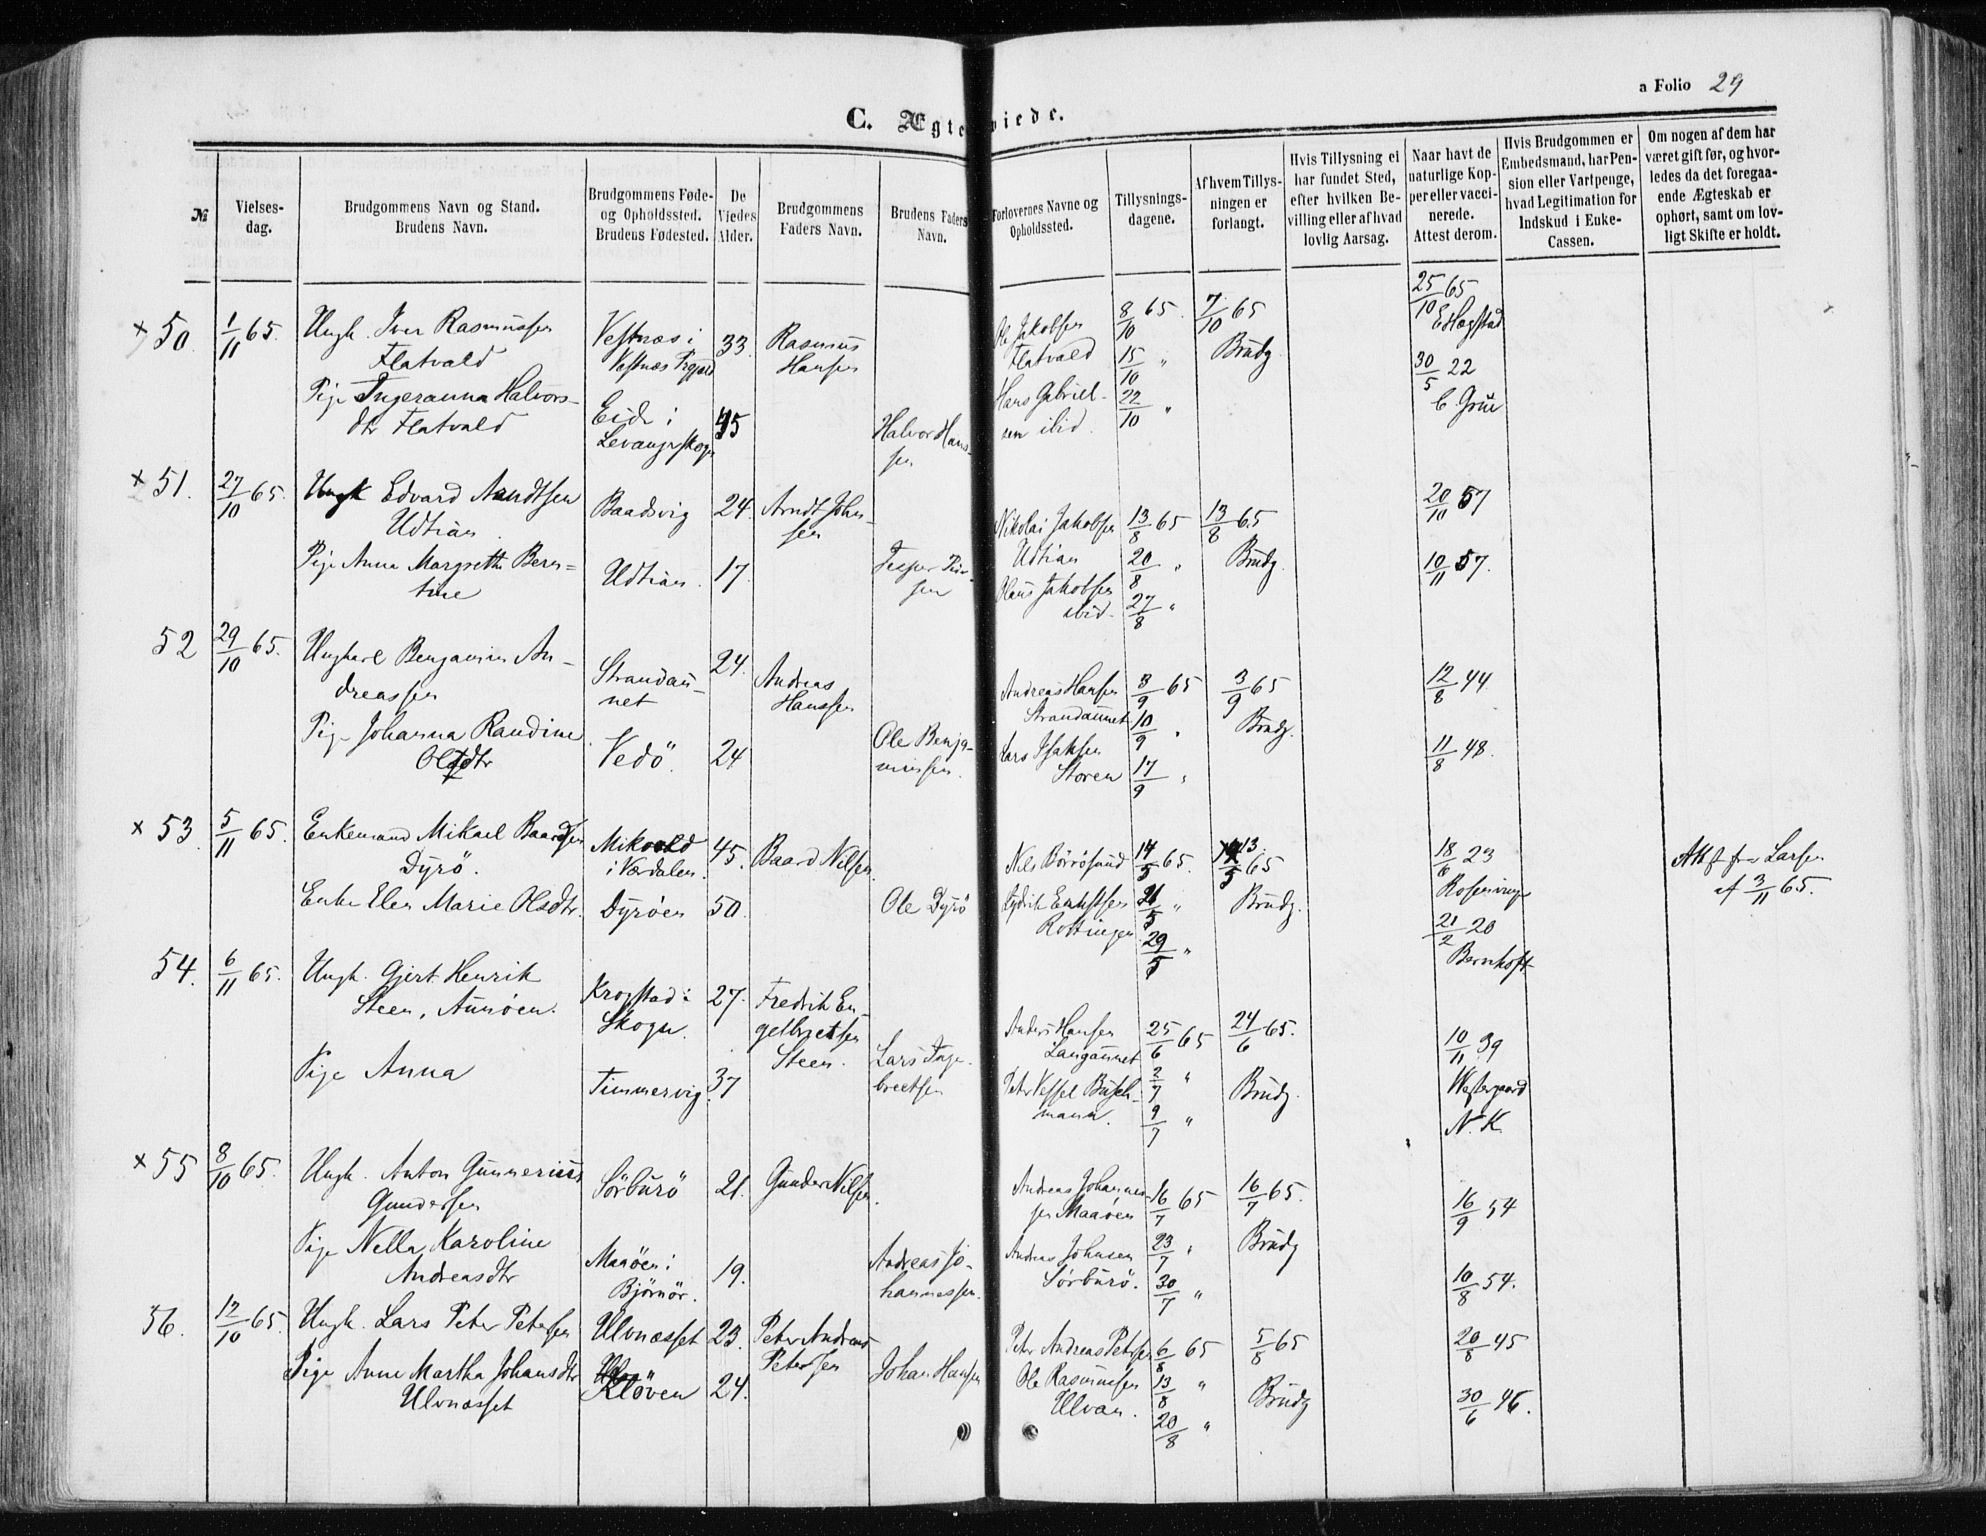 a Folio 29
C. Ægteviede.
№
Vielses-
dag.
Brudgommens Navn og Stand.
Brudens Navn.
Brudgommens Føde-
og Opholdssted.
Brudens Fødested.
De
Viedes
Alder.
Brudgommens
Faders Navn.
Brudens Faders
Navn.
Forlovernes Navne og
Opholdssted.
Tillysnings-
dagene.
Af hvem Tillys-
ningen er
forlangt.
Hvis Tillysning ei
har fundet Sted,
efter hvilken Be-
villing eller af hvad
lovlig Aarsag.
Naar havt de
naturlige Kop-
per eller vacci-
nerede.
Attest derom.
Hvis Brudgommen er
Embedsmand, har Pen-
sion eller Vartpenge,
hvad Legitimation for
Indskud i Enke-
Cassen.
Om nogen af dem har
været gift før, og hvor-
ledes da det foregaa-
ende Ægteskab er
ophørt, samt om lov-
ligt Skifte er holdt.
× 50.
1/11 65.
Ungk. Iver Rasmussen
Flatvald
Pige Ingeranna Halvors-
dtr Flatvald
Vestnæs i
Vestnæs Prgjæld
Eide i
Levanger Skogn
33
45
Rasmus
Hansen
Halvor Hans-
sen
Ole Jakobsen
Flatvald
Hans Gabriel-
sen ibid.
8/10 65.
15/10 "
22/10 "
7/10 65
Brudg.
25/10 65
E Hegstad
30/5 22
C. Grüe
× 51.
27/10 65.
Ungk Edvard Arndtsen
Udtian
Pige Anne Margrethe Bern-
tine
Baadsvig
Udtian.
24.
17.
Arndt John-
sen
Jesper Iver-
sen
Nikolai Jakobsen
Udtian
Olaus Jakobsen
ibid.
13/8 65
20/8 "
27/8 "
13/8 65
Brudg.
20/10 57
10/11 57.
52
29/10 65.
Ungkarl Benjamin An-
dreassen
Pige Johanna Randine
Olsdtr
Strandau-
net
Vedö.
24.
24
Andreas
Hanssen
Ole Benja-
minsen.
Andreas Hansen
Strandaunet
Lars Isaksen
Storen
3/9 65
10/9 "
17/9 "
3/9 65
Brudg.
12/8 44
11/8 48.
× 53.
5/11 65.
Enkemand Mikael Baardsen
Dyrö.
Enke Elen Marie Olsdtr.
Mikvold
i Værdalen.
Dyröen
45.
50.
Baard Nilsen.
Ole Dyrö
Nils Börrösund
Fredrik Erntsen
Rottingen
14/5 65.
21/5 "
29/5 "
13/5 65
Brudg.
18/6 23
Rosenvinge
21/2 20
Bernhoft
Akf fra Larsen
af 3/11 65.
54.
6/11 65.
Ungk. Gjert Henrik
Steen, Aunöen.
Pige Anna
Krogstad i
Skogn.
Timmervig.
27.
37
Fredrik En-
gelbretsen
Steen.
Lars Inge-
bretsen
Anders Hansen
Langaunet
Peter Vessel Busch-
mann.
25/6 65
2/7 "
9/7 "
24/6 65.
Brudg.
10/11 39
Westergaard
N. K.
× 55
8/10 65.
Ungk. Anton Gunnerius
Gundersen
Pige Nella Karoline
Andreasdtr
Sörburö
Maaöen i
Bjørnör.
21.
19.
Gunder Nilsen.
Andreas Jo-
hannessen.
Andreas Johannes-
sen Maaöen
Andreas Johnsen
Sörburö.
16/7 65
23/7 "
30/7 "
16/7 65.
Brudg
16/9 54
10/8 54.
56.
12/10 65.
Ungk. Lars Peter Petersen
Pige Anne Martha Johansdtr
Ulvnæsset
Ulvnæsset
Klöven
23.
24.
Peter Andreas
Petersen
Johan Hansen
Peter Andreas Petersen
Ole Rasmussen
Ulvan.
6/8 65
13/8 "
20/8 "
5/8 65
Brudg
20/8 45
30/6 46.